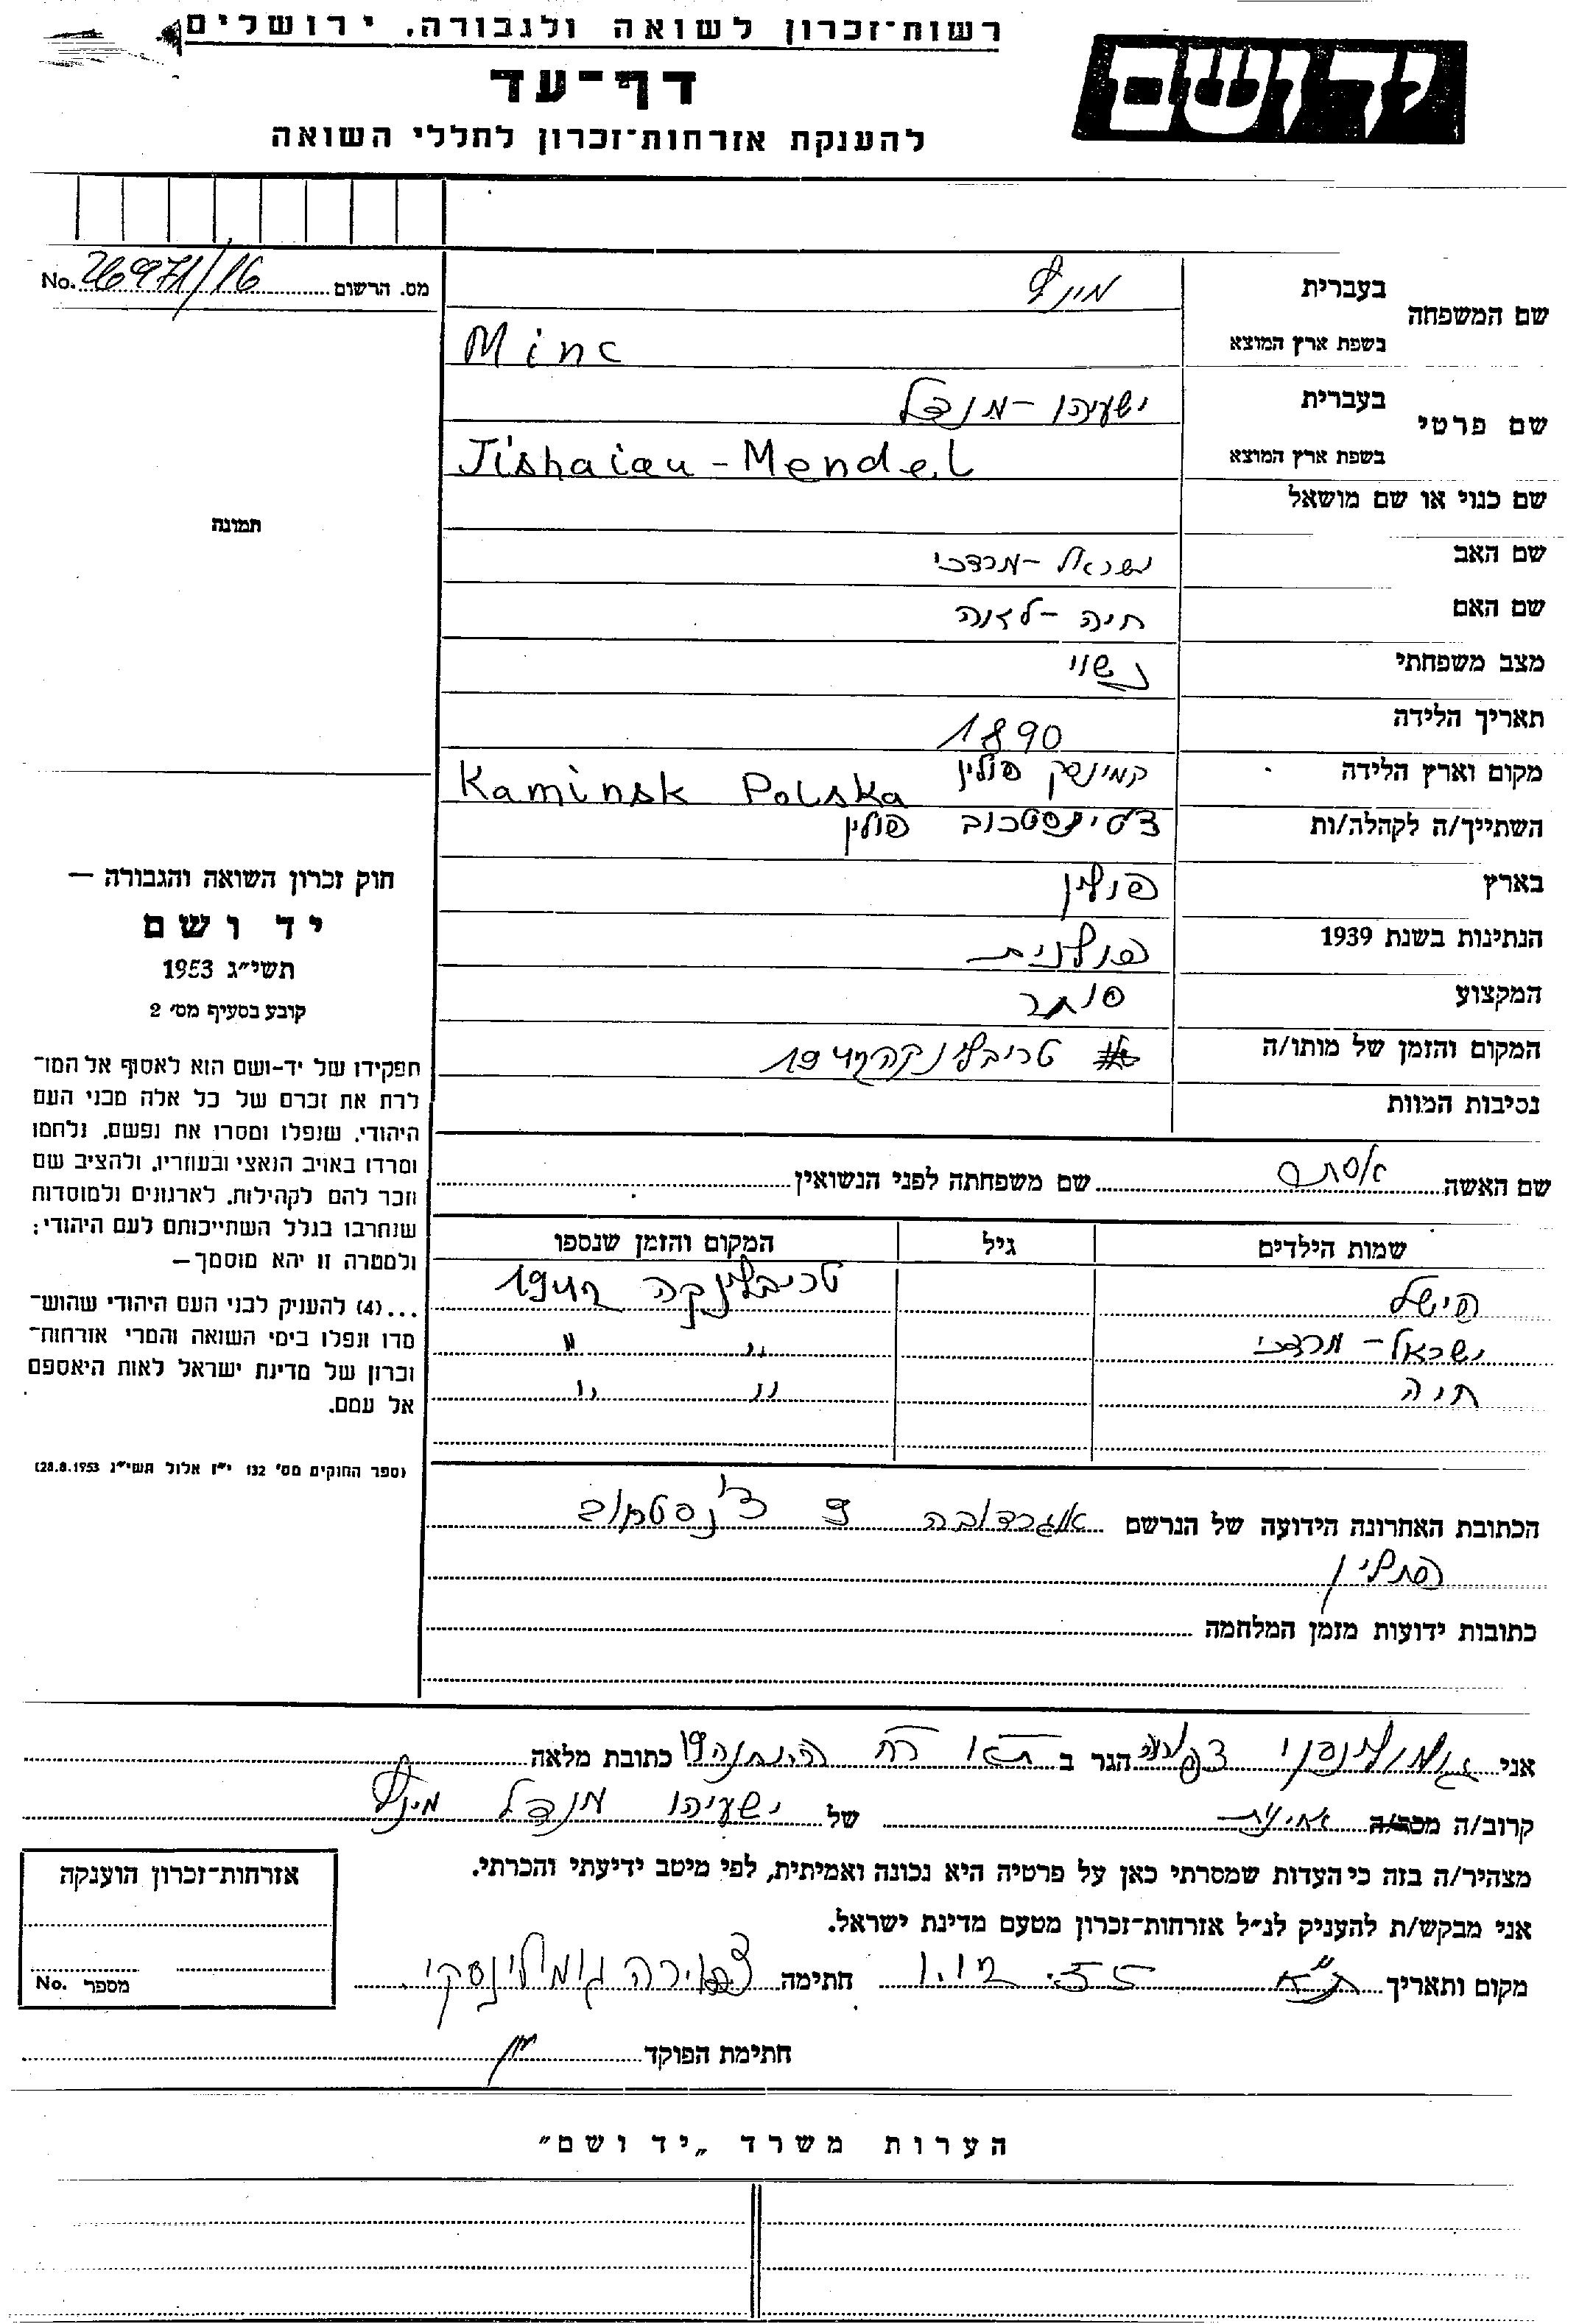 רשות־זכרון לשואה ולגבורה, ירושלים
ידושם
דף־עד
להענקת אזרחות־זכרון לחללי השואה
No. 26971/16 מס. הרשום
שם המשפחה
בעברית מינץ
בשפת ארץ המוצא Minc
שם פרטי
בעברית ישעיהו - מנדל
בשפת ארץ המוצא Jishaiau - Mendel
שם כנוי או שם מושאל
תמונה
שם האב ישראל - מרדכי
שם האם חיה - לאה
מצב משפחתי נשוי
תאריך הלידה 1890
מקום וארץ הלידה קמינסק פולין Kaminsk Polska
השתייך/ה לקהלה/ות פולין
בארץ פולין
הנתינות בשנת 1939 פולנית
המקצוע סוחר
המקום והזמן של מותו/ה טריבלינקה 1942
נסיבות המוות
חוק זכרון השואה והגבורה —
יד ושם
תשי״ג 1953
קובע בסעיף מס׳ 2
תפקידו של יד-ושם הוא לאסוף אל המו־
לדת את זכרם של כל אלה מבני העם
היהודי, שנפלו ומסרו את נפשם, נלחמו
ומרדו באויב הנאצי ובעוזריו, ולהציב שם
וזכר להם לקהילות, לארגונים ולמוסדות
שנחרבו בגלל השתייכותם לעם היהודי;
ולמטרה זו יהא מוסמך—
...(4) להעניק לבני העם היהודי שהוש־
מדו ונפלו בימי השואה והמרי אזרחות־
זכרון של מדינת ישראל לאות היאספם
אל עמם.
(ספר החוקים מס׳ 132 י״ז אלול תשי״ג 28.8.1953)
שם האשה אסתר שם משפחתה לפני הנשואין
שמות הילדים גיל המקום והזמן שנספו
פישל טריבלינקה 1942
ישראל - מרדכי " "
חיה " "
הכתובת האחרונה הידועה של הנרשם 9
פולין
כתובות ידועות מזמן המלחמה
אני גומולינסקי צפורה הגר ב ת"א רח כתובת מלאה
קרוב/ה אחינית של ישעיהו מנדל מינץ
מצהיר/ה בזה כי העדות שמסרתי כאן על פרטיה היא נכונה ואמיתית, לפי מיטב ידיעתי והכרתי.
אני מבקש/ת להעניק לנ״ל אזרחות־זכרון מטעם מדינת ישראל.
מקום ותאריך ת"א 1.12.55 חתימה צפורה גומולינסקי
אזרחות־זכרון הוענקה
No. מספר
חתימת הפוקד
הערות משרד „יד ושם״